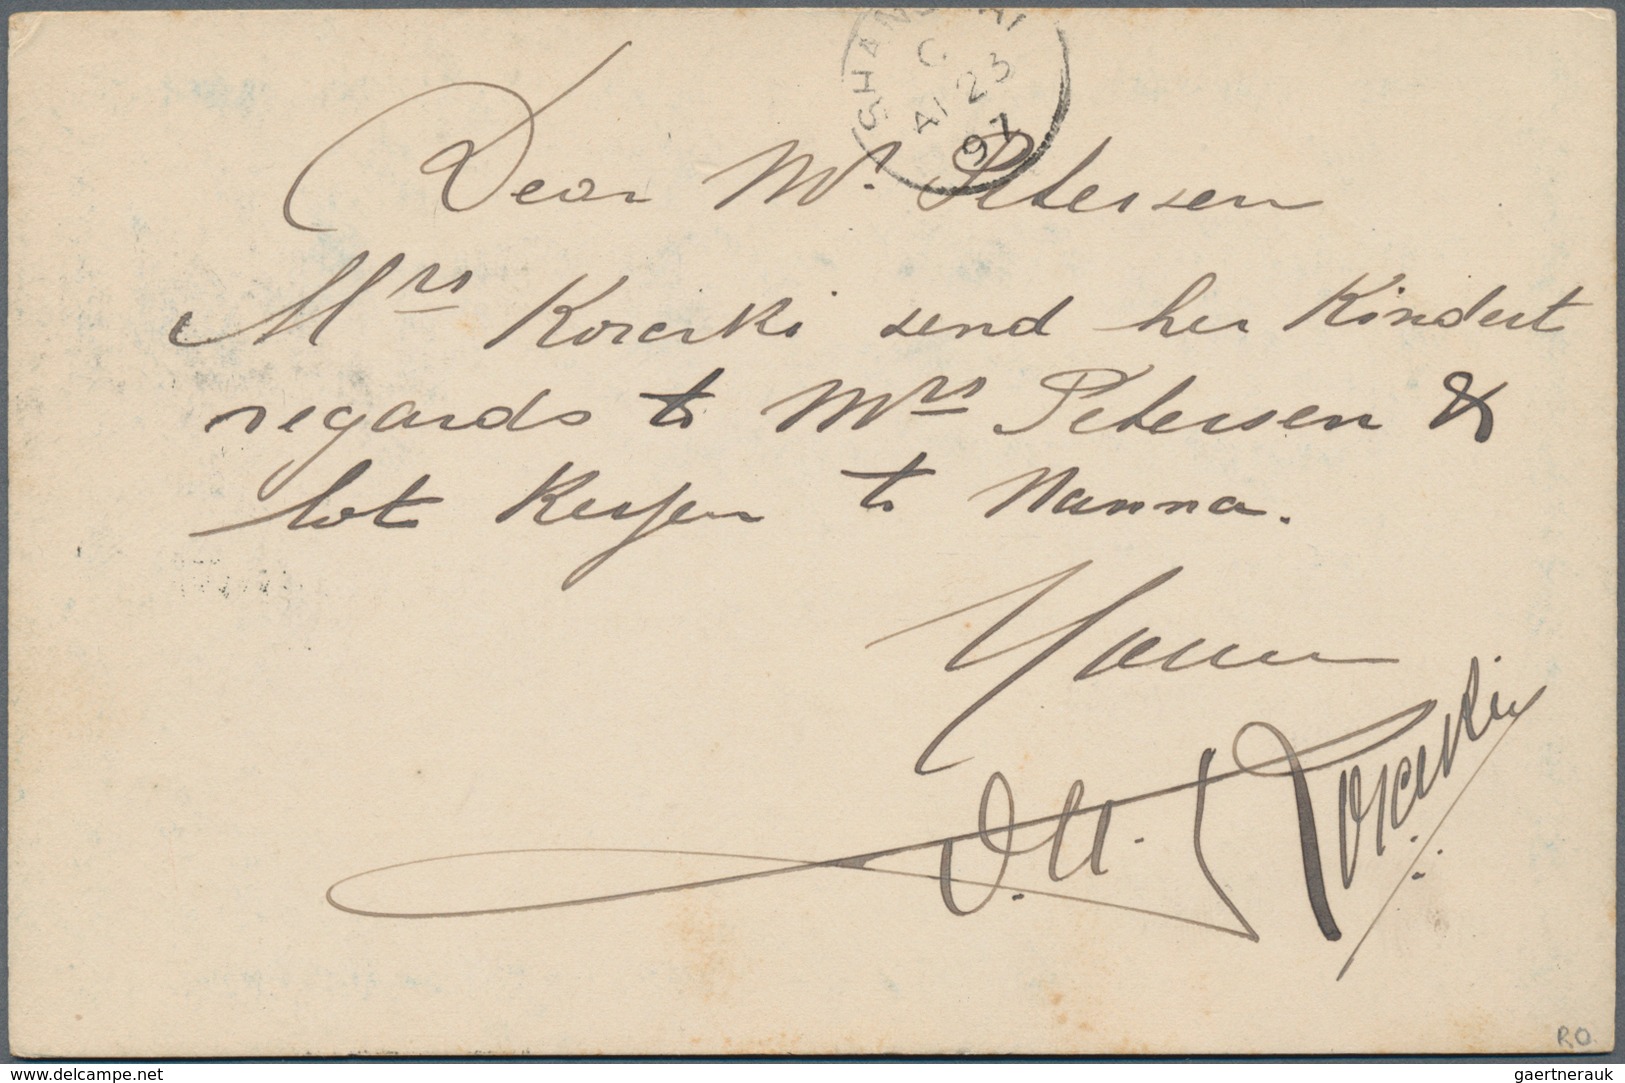 SHANGHAI
C
AP 23
97
Dear Mr. Petersen
Mrs Korerski send her Kindest
regards to Mrs Petersen &
lot Kesser to Nanna.
Your
R.O.
www.delcampe.net
gaertnerauk